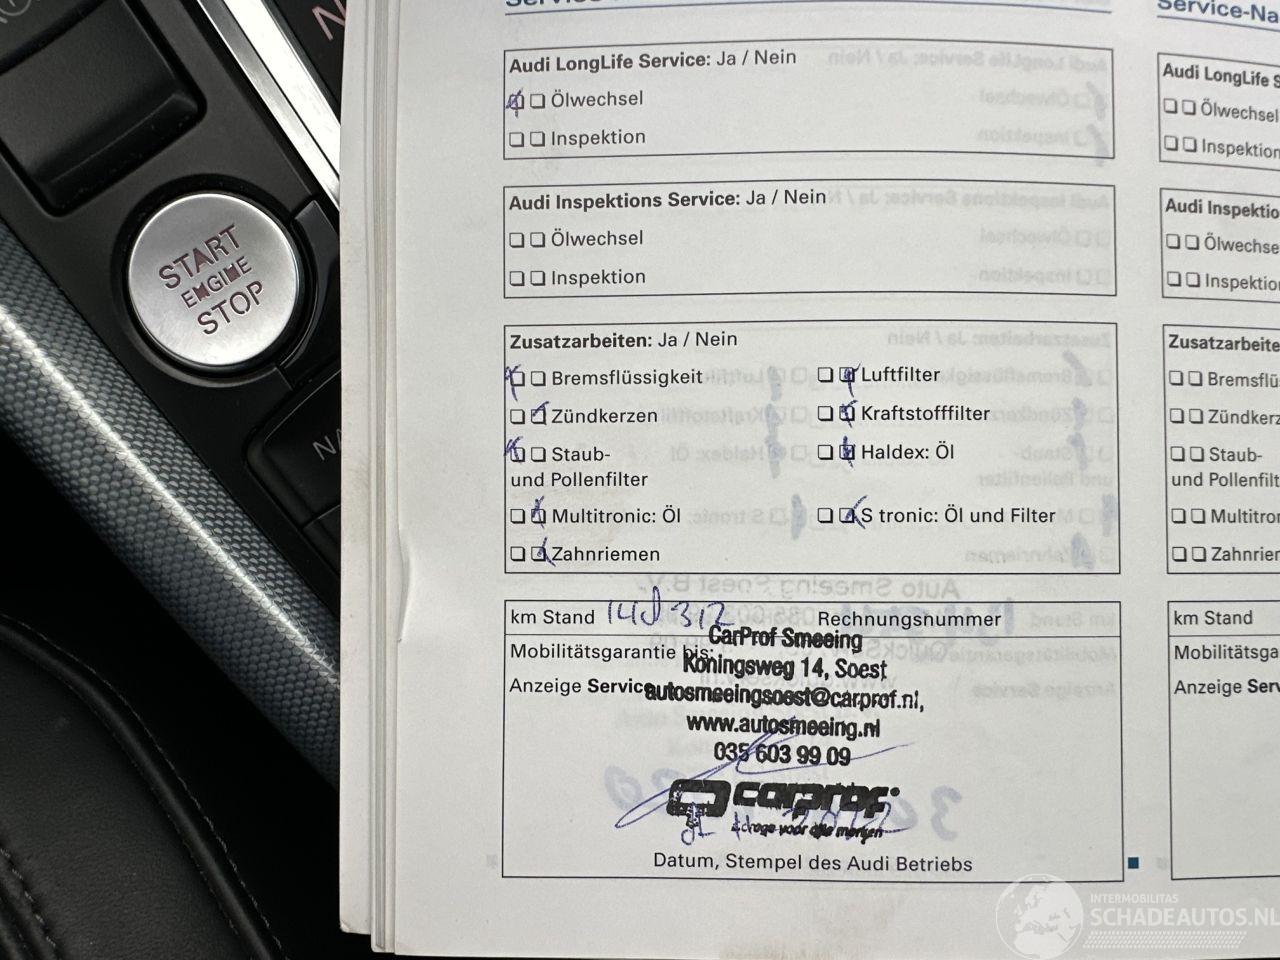 START
ENGINE
STOP
Audi LongLife Service: Ja / Nein
Ölwechsel
Inspektion
Audi Inspektions Service: Ja / Nein
Ölwechsel
Inspektion
Zusatzarbeiten: Ja / Nein
Bremsflüssigkeit
Luftfilter
Zündkerzen
Kraftstofffilter
Staub-
und Pollenfilter
Haldex: Öl
Multitronic: Öl
S tronic: Öl und Filter
Zahnriemen
km Stand
Rechnungsnummer
Mobilitätsgarantie bis:
Anzeige Service
CarProf Smeeing
Koningsweg 14, Soest
autosmeeingsoest@carprof.nl,
www.autosmeeing.nl
035 603 99 09
carprof
Datum, Stempel des Audi Betriebs
Service-Na
Audi LongLife S
Ölwechsel
Inspektion
Audi Inspektio
Ölwechse
Inspektion
Zusatzarbeite
Bremsflü
Zündkerz
Staub-
und Pollenfilt
Multitron
Zahnriem
km Stand
Mobilitätsga
Anzeige Serv
INTERMOBILITAS
SCHADEAUTOS.NL